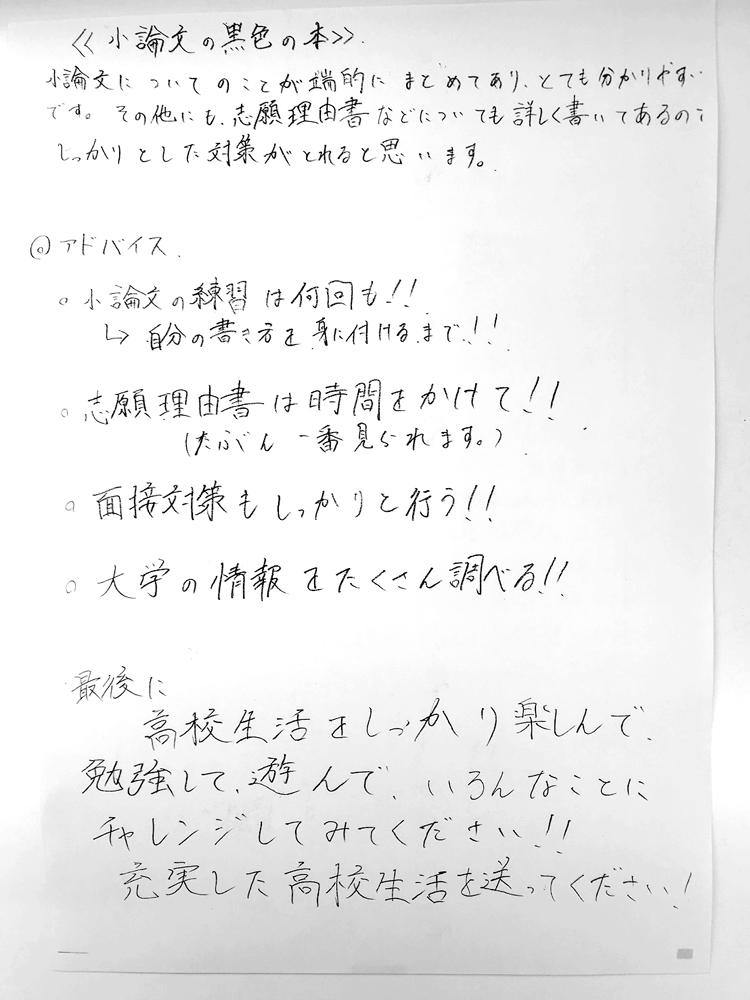 ≪小論文の黒色の本≫.
小論文についてのことが端的にまとめてあり、とても分かりやすい
です。その他にも、志願理由書などについても詳しく書いてあるので
しっかりとした対策がとれると思います。
◎アドバイス.
○小論文の練習は何回も!!
↳自分の書き方を身に付けるまで!!
○志願理由書は時間をかけて!!
(たぶん一番見られます。)
○面接対策もしっかりと行う!!
○大学の情報をたくさん調べる!!
最後に
高校生活をしっかり楽しんで、
勉強して、遊んで、いろんなことに
チャレンジしてみてください!!
充実した高校生活を送ってください!